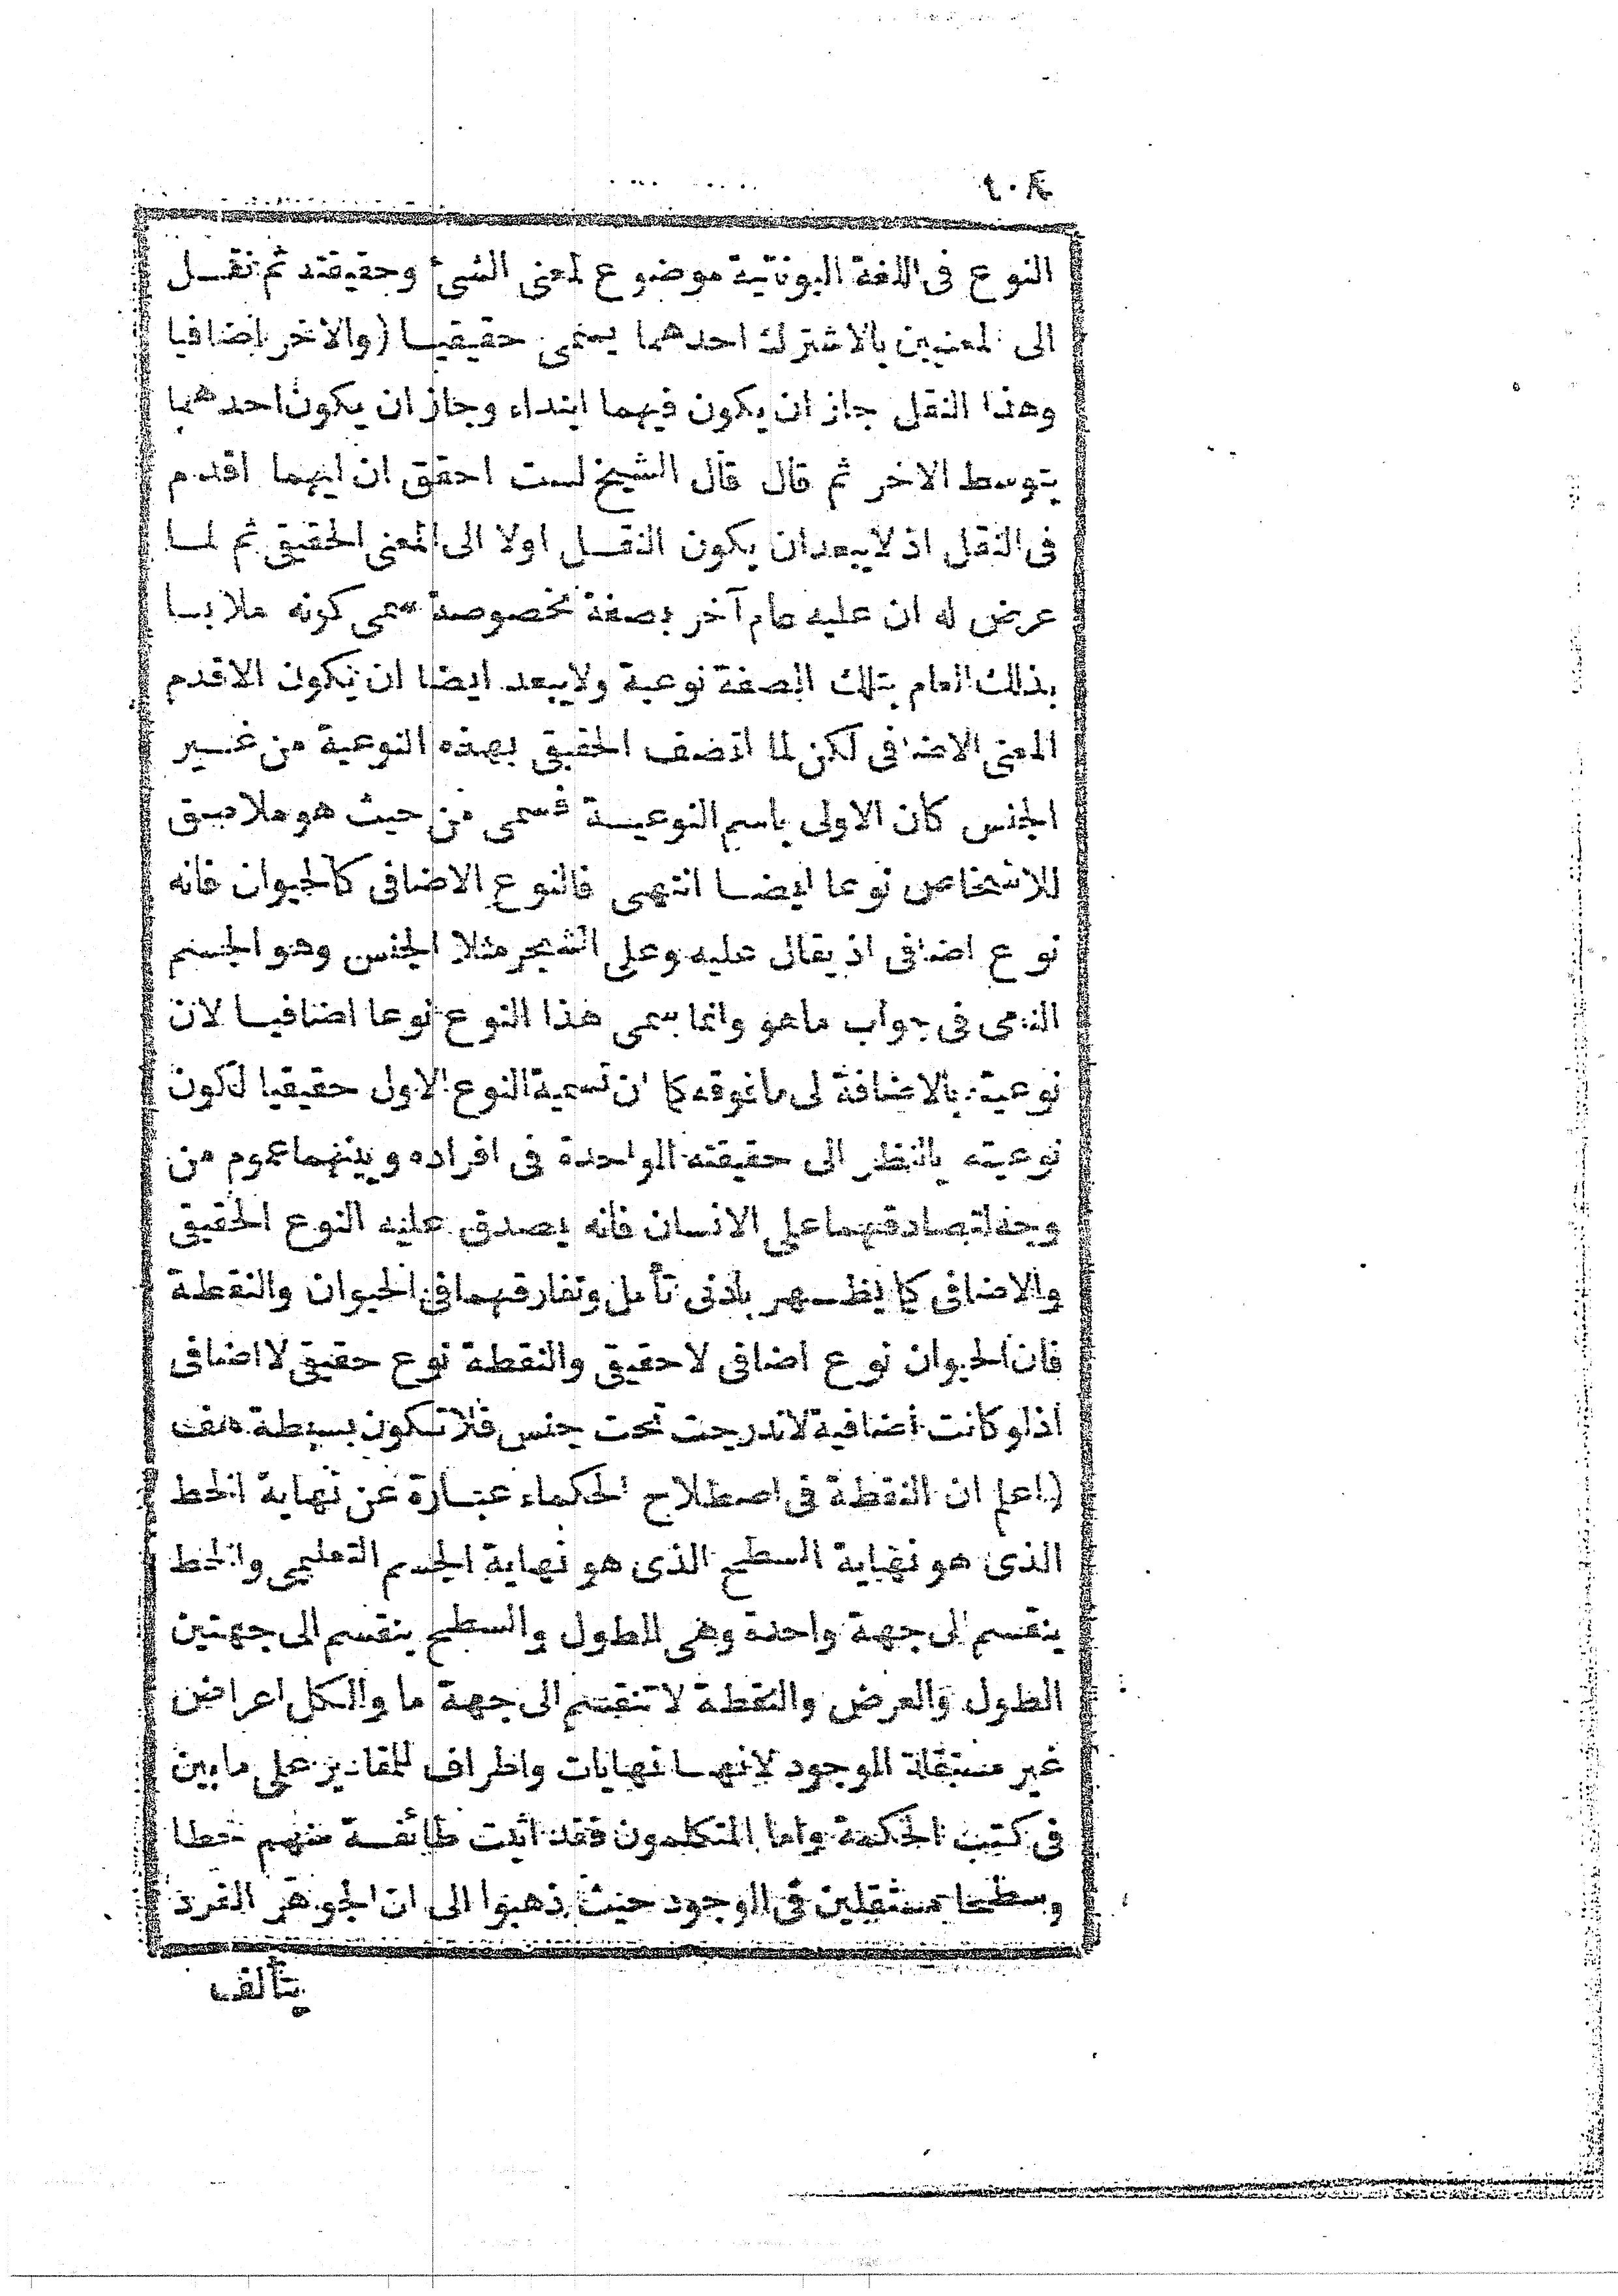 النوع فى اللغة اليونانية موضوع لمعنى الشئ وحقيقته ثم نقل
الى لمعنيين بالاشترك احدهما يسمى حقيقيا (والاخر اضافيا
وهذا النقل جاز ان يكون فيهما ابتداء وجاز ان يكون احدهما
بتوسط الاخر ثم قال قال الشيخ لست احقق ان ايهما اقدم
فى النقل اذ لا يبعد ان يكون النقل اولا الى المعنى الحقيقى ثم لما
عرض له ان عليه عام آخر بصفة مخصوصة سمى كونه ملابسا
بذلك العام بتلك الصفة نوعية ولا يبعد ايضا ان يكون الاقدم
المعنى الاضافى لكن لما اتصف الحقيقى بهذه النوعية من غير
الجنس كان الاولى باسم النوعية فسمى من حيث هو ملاصق
للاشخاص نوعا ايضا انتهى فالنوع الاضافى كالحيوان فانه
نوع اضافى اذ يقال عليه وعلى الشجر مثلا الجنس وهو الجسم
النامى فى جواب ماهو وانما سمى هذا النوع نوعا اضافيا لان
نوعيته بالاضافة لى مافوقه كما ان تسمية النوع الاول حقيقيا لكون
نوعيته بالنظر الى حقيقته الواحدة فى افراده وبينهما عموم من
وجه لتصادقهما على الانسان فانه يصدق عليه النوع الحقيقى
والاضافى كما يظهر بادنى تأمل وتفارقهما فى الحيوان والنقطة
فان الحيوان نوع اضافى لا حقيقى والنقطة نوع حقيقى لا اضافى
اذ لو كانت اضافية لاندرجت تحت جنس فلا تكون بسيطة هف
(اعلم ان النقطة فى اصطلاح الحكماء عبارة عن نهاية الخط
الذى هو نهاية السطح الذى هو نهاية الجسم التعليمى والخط
ينقسم الى جهة واحدة وهى الطول والسطح ينقسم الى جهتين
الطول والعرض والنقطة لا تنقسم الى جهة ما والكل اعراض
غير مستقلة الوجود لانها نهايات واطراف للمقادير على مابين
فى كتب الحكمة واما المتكلمون فقد اثبت طائفة منهم خطا
وسطحا مستقلين فى الوجود حيث ذهبوا الى ان الجوهر الفرد
يتألف